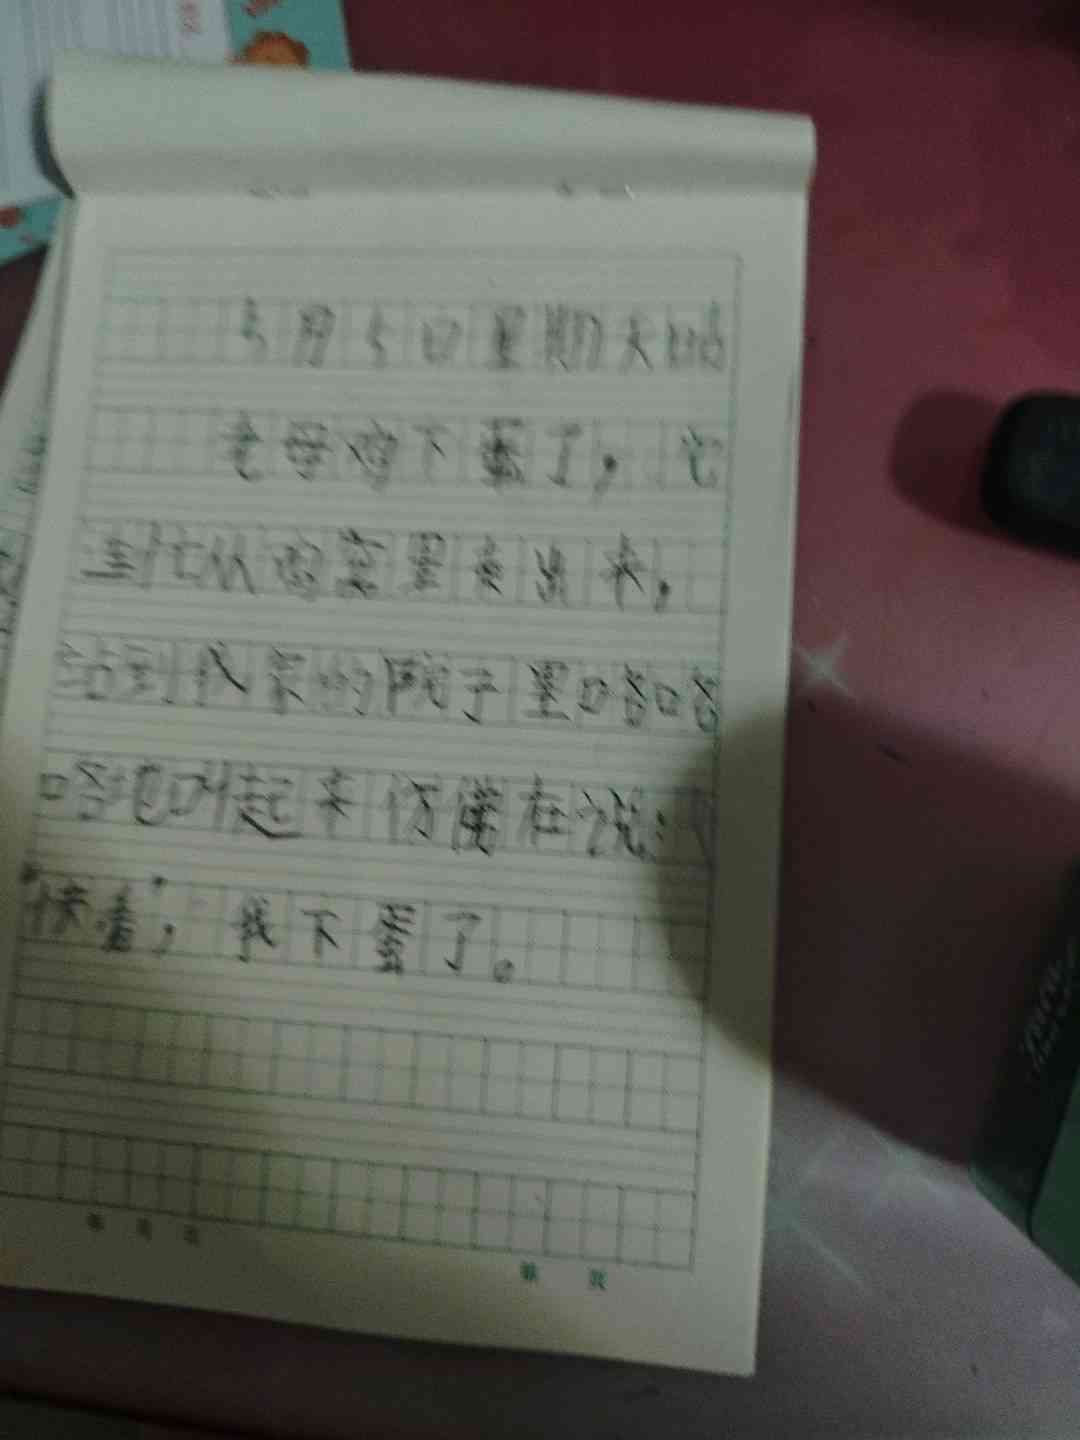 5月5日星期天晴
老母鸡下蛋了，它
连忙从鸡窝里走出来，
站到我家的院子里咯咯
咯地叫起来仿佛在说：
快看，我下蛋了。